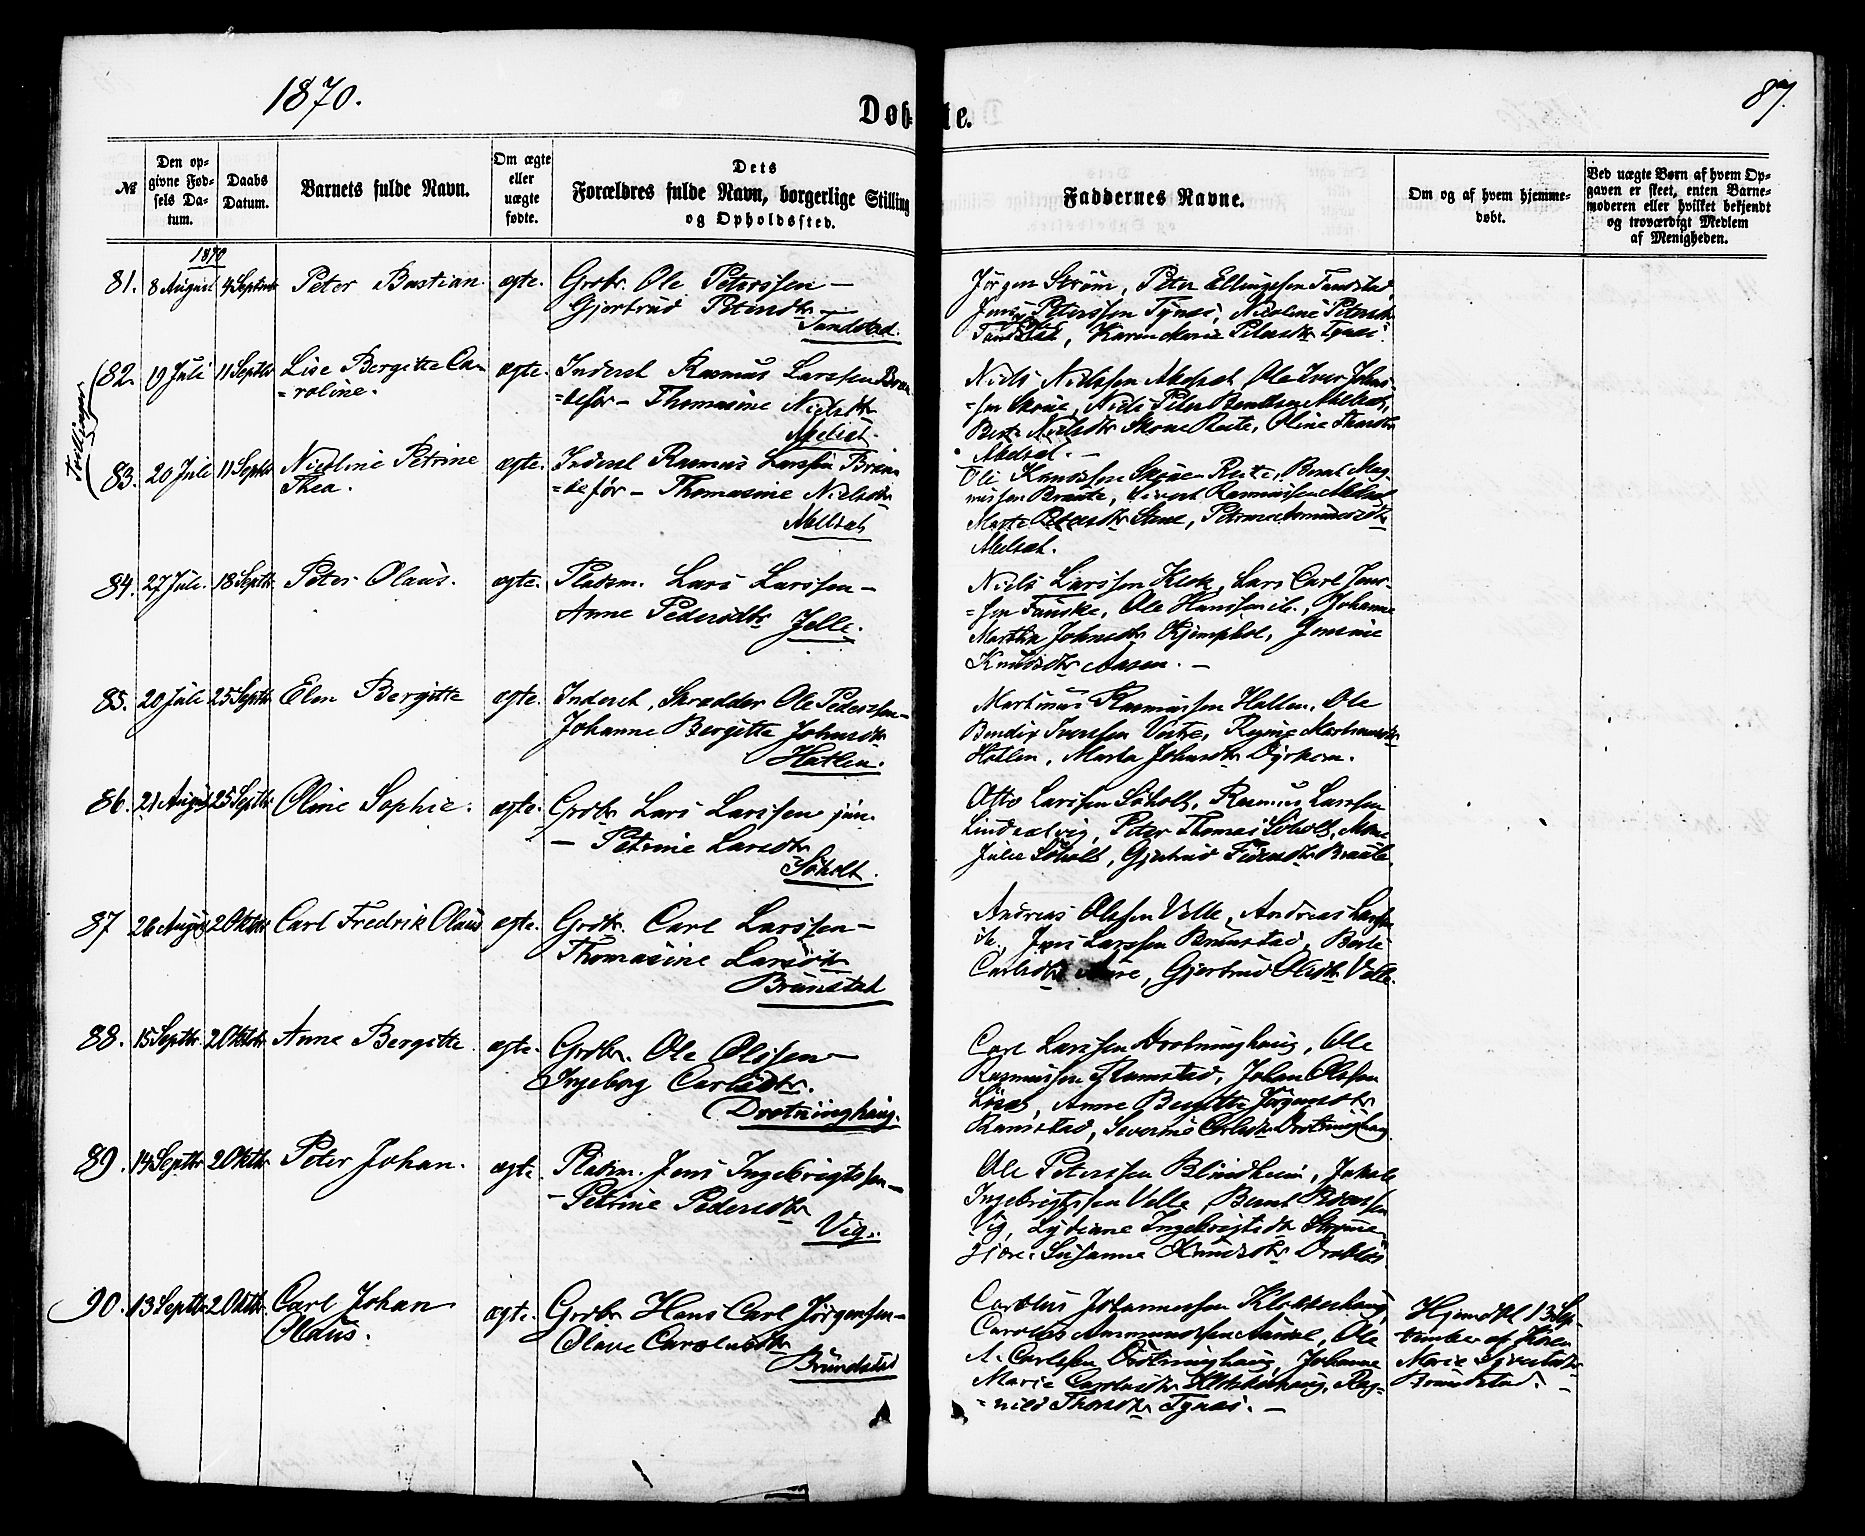 1870.
87.
Døbte.
№
Den opgivne Fødsels Datum.
Daabs Datum.
Barnets fulde Navn.
Om ægte eller uægte fødte.
Dets
Forældres fulde Navn, borgerlige Stilling
og Opholdssted.
Faddernes Navne.
Om og af hvem hjemmedøbt.
Ved uægte Børn af hvem Opgaven er skeet, enten Barnemoderen eller hvilket bekjendt og troværdigt Medlem af Menigheden.
1870
81. 8 August 4 Septbr Peter Bastian. ægte. Grdbr. Ole Peterssen –
Gjertrud Petersdtr
Tandstad.
Jørgen Strøm, Peter Ellingssen Tandstad,
Jens Peterssen Tynæs, Nicoline Petersdtr
Tandstad, Karen Marie Petersdtr Tynæs.
Tvillinger
82. 19 Juli 11 Septbr Lise Bergitte Ca-
=roline. ægte. Inderst Rasmus Larssen Brun
=defør – Thomasine Nielsdtr
Abelsæt.
Niels Nielssen Abelsæt, Ole Iver Johns-
=sen Skoue, Niels Peter
Abelsæt. –
83. 20 Juli 11 Septbr Nicoline Petrine
Thea. ægte. Inderst Rasmus Larssen Brun
=defør – Thomasine Nielsdtr
Abelsæt
Ole Knudssen Skoue
Abelsæt.
84. 27 Juli. 18 Septbr. Peter Olaus. ægte. Pladsm. Lars Larssen –
Anne Pedersdtr Jelle.
Niels Larssen Klok, Lars Carl Jens-
=sen Fauske, Ole Hanssen ib., Johanne
Martha Johnsdtr Kjemphol, Jensine
Knudsdtr Aasen. –
85. 20 Juli 25 Septbr. Elen Bergitte ægte. Inderst, Skrædder Ole Pederssen –
Johanne Bergitte Johnsdtr
Hatlen.
Martinus Rasmussen Hatlen, Ole
Bendix Iverssen
Hatlen, Marta Johnsdtr Dyrkorn.
86. 21 August 25 Septbr Oline Sophie. ægte. Grdbr Lars Larssen jun.
– Petrine Larsdtr
Søholt.
Otto Larssen Søholt, Rasmus Larssen
Peter Thomas Søholt,
Julie Søholt, Gjertrud
87 26 August 2 Oktbr Carl Fredrik Olaus ægte. Grdbr. Carl Larssen –
Thomasine Larsdtr
Brunstad
Andreas Olssen Velle, Andreas Larssen
ib., Jens Larssen Brunstad, Berte
Carlsdtr Aure, Gjertrud Olsdtr Velle.
88. 15 Septbr. 2 Oktbr Anne Bergitte ægte. Grdbr. Ole Olssen –
Ingeborg Carlsdtr.
Drotninghaug.
Carl Larssen Drotninghaug, Ole
Rasmussen Ramstad, Johan Olssen
Anne Bergitte Jørgensdtr
Ramstad, Severine Carlsdtr Drotninghaug
89. 14 Septbr 2 Oktbr Peter Johan. ægte. Pladsm. Jens Ingebrigtssen –
– Petrine Pedersdtr
Vig.
Ole Peterssen Blindheim, Jakob
Ingebrigtssen Velle, Bernt
Vig, Lydiane Ingebrigtsdtr
Susanne Knudsdtr Drabløs
90. 13 Septbr 2 Oktbr. Carl Johan
Olaus. ægte. Grdbr Hans Carl Jørgenssen –
Olave Carolusdtr
Brundstad
Carolus Johannessen Klokkerhaug,
Carolus Ammundssen Aurdal, Ole
A. Carlssen Drotninghaug, Johanne
Marie Carolusdtr Klokkerhaug, Rag-
=nild Thorsdtr Tynæs. –
Hjemdøbt 13 Sep-
tember af Karen
Marie Syvertsdtr
Brundstad. –